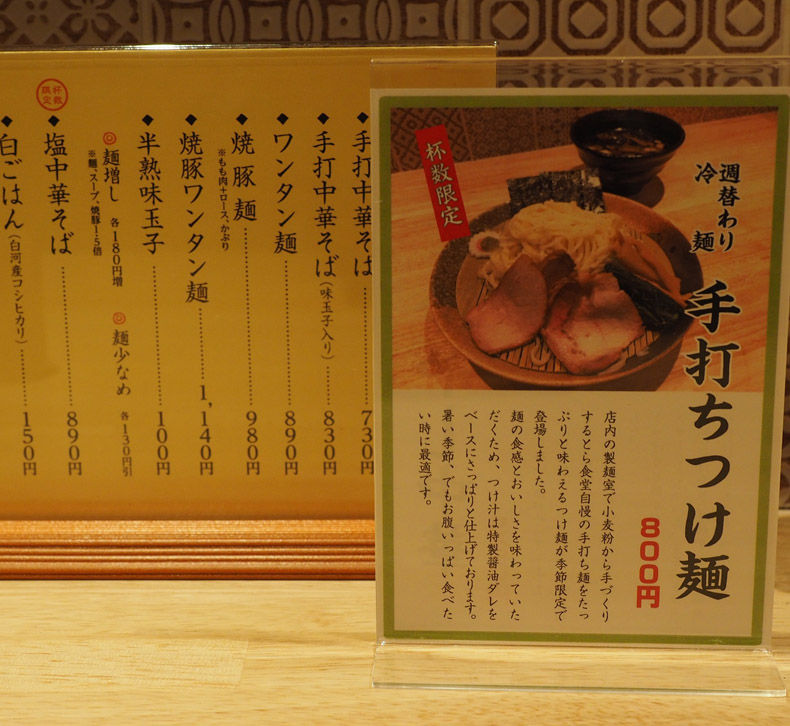 手打中華そば
730円
手打中華そば（味玉子入り）
830円
ワンタン麺
890円
焼豚麺
※もも肉＋ロース、かぶり
980円
焼豚ワンタン麺
1,140円
半熟味玉子
100円
麺増し 各180円増
※麺、スープ、焼豚1.5倍
麺少なめ 各130円引
杯数限定
塩中華そば
890円
白ごはん（白河産コンヒカリ）
150円
杯数限定
週替わり
冷麺
手打ちつけ麺
800円
店内の製麺室で小麦粉から手づくり
するとら食堂自慢の手打ち麺をたっ
ぷりと味わえるつけ麺が季節限定で
登場しました。
麺の食感とおいしさを味わっていた
だくため、つけ汁は特製醤油ダレを
ベースにさっぱりと仕上げております。
暑い季節、でもお腹いっぱい食べた
い時に最適です。